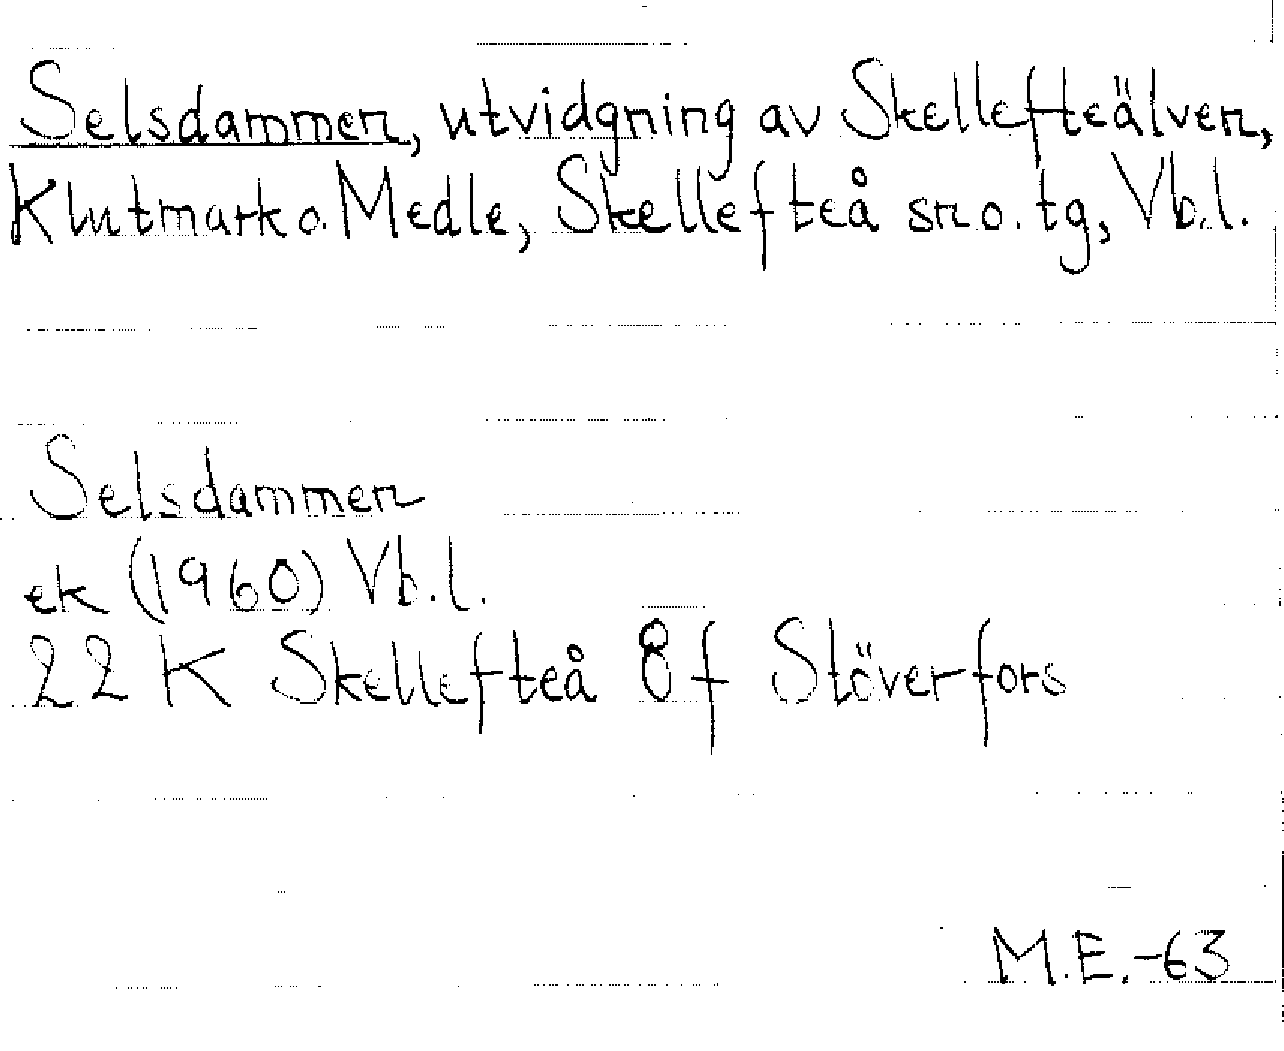 Selsdammen, utvidgning av Skellefteälven,
Klutmark o. Medle, Skellefteå sn o. tg, Vb.l.
Selsdammen
ek (1960) Vb.l.
22 K Skellefteå 8f Stöverfors
M.E.-63